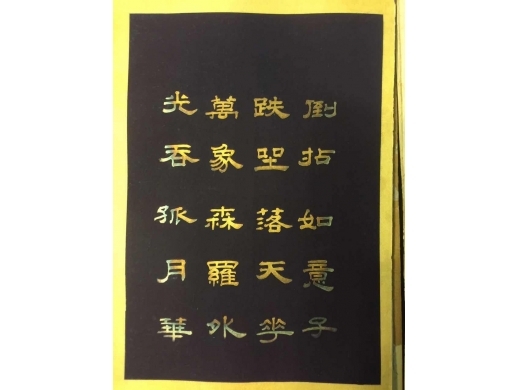 倒拈如意子
趺坐落天花
萬象森羅外
光吞孤月華